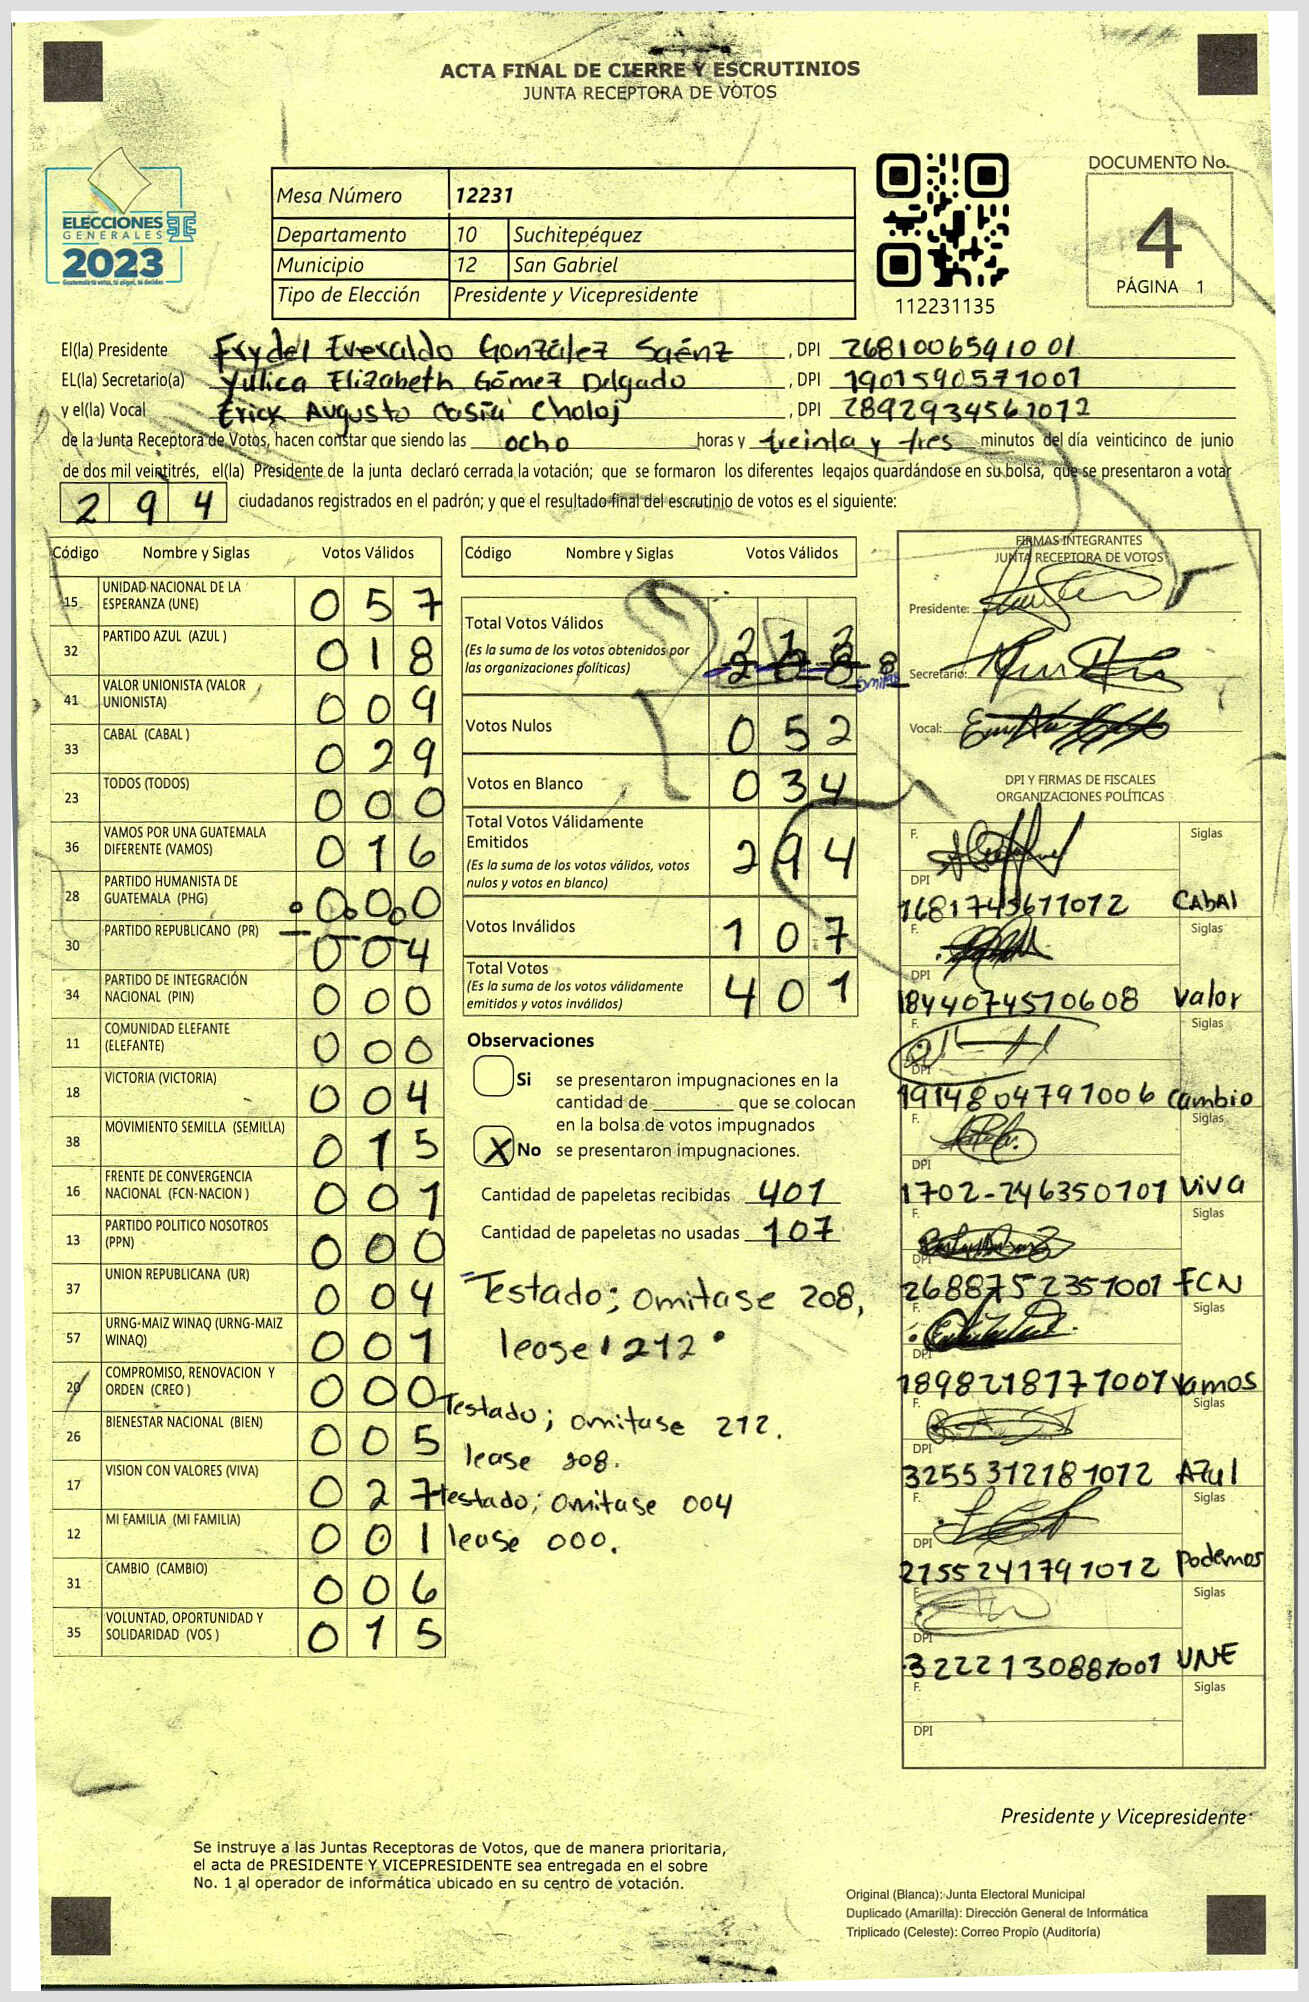 ACTA FINAL DE CIERRE Y ESCRUTINIOS
JUNTA RECEPTORA DE VOTOS
ELECCIONES
GENERALES
2023
Mesa Número 12231
Departamento 10 Suchitepéquez
Municipio 12 San Gabriel
Tipo de Elección Presidente y Vicepresidente
112231135
DOCUMENTO No.
4
PÁGINA 1
El(la) Presidente Frydel Everaldo González Saénz, DPI 2681006591001
EL(la) Secretario(a) Yulica Elizabeth Gómez Delgado, DPI 1901590571001
y el(la) Vocal Erick Augusto Casia Choloj, DPI 2892934561012
de la Junta Receptora de Votos, hacen constar que siendo las ocho horas y treinta y tres minutos del día veinticinco de junio
de dos mil veintitrés, el(la) Presidente de la junta declaró cerrada la votación; que se formaron los diferentes legajos quardándose en su bolsa, que se presentaron a votar
294 ciudadanos registrados en el padrón; y que el resultado final del escrutinio de votos es el siguiente:
Código Nombre y Siglas Votos Válidos
15 UNIDAD NACIONAL DE LA ESPERANZA (UNE) 057
32 PARTIDO AZUL (AZUL ) 018
41 VALOR UNIONISTA (VALOR UNIONISTA) 009
33 CABAL (CABAL ) 029
23 TODOS (TODOS) 000
36 VAMOS POR UNA GUATEMALA DIFERENTE (VAMOS) 016
28 PARTIDO HUMANISTA DE GUATEMALA (PHG) 000
30 PARTIDO REPUBLICANO (PR) 004
34 PARTIDO DE INTEGRACIÓN NACIONAL (PIN) 000
11 COMUNIDAD ELEFANTE (ELEFANTE) 000
18 VICTORIA (VICTORIA) 004
38 MOVIMIENTO SEMILLA (SEMILLA) 015
16 FRENTE DE CONVERGENCIA NACIONAL (FCN-NACION ) 001
13 PARTIDO POLITICO NOSOTROS (PPN) 000
37 UNION REPUBLICANA (UR) 004
57 URNG-MAIZ WINAQ (URNG-MAIZ WINAQ) 001
20 COMPROMISO, RENOVACION Y ORDEN (CREO ) 000
26 BIENESTAR NACIONAL (BIEN) 005
17 VISION CON VALORES (VIVA) 027
12 MI FAMILIA (MI FAMILIA) 001
31 CAMBIO (CAMBIO) 006
35 VOLUNTAD, OPORTUNIDAD Y SOLIDARIDAD (VOS ) 015
Código Nombre y Siglas Votos Válidos
Total Votos Válidos
(Es la suma de los votos obtenidos por las organizaciones políticas)
Votos Nulos 052
Votos en Blanco 034
Total Votos Válidamente Emitidos 294
(Es la suma de los votos válidos, votos nulos y votos en blanco)
Votos Inválidos 107
Total Votos 401
(Es la suma de los votos válidamente emitidos y votos inválidos)
Observaciones
Si se presentaron impugnaciones en la
cantidad de ________ que se colocan
en la bolsa de votos impugnados
X No se presentaron impugnaciones.
Cantidad de papeletas recibidas 401
Cantidad de papeletas no usadas 107
Testado; omitase 208,
lease 212
Testado; omitase 212.
lease 208.
testado; omitase 004
lease 000.
FIRMAS INTEGRANTES
JUNTA RECEPTORA DE VOTOS
Presidente:
Secretario:
Vocal:
DPI Y FIRMAS DE FISCALES
ORGANIZACIONES POLÍTICAS
F. Siglas
DPI 1681745611012 CABAl
F. Siglas
DPI 1844074510608 Valor
F. Siglas
DPI 1914804791006 cambio
F. Siglas
DPI 1702-246350101 Viva
F. Siglas
DPI 2688752351001 FCN
F. Siglas
DPI 1898218171001 Vamos
F. Siglas
DPI 3255312181012 AZul
F. Siglas
DPI 2155241791012 Podemos
F. Siglas
DPI 3222130881001 UNE
F. Siglas
DPI
Presidente y Vicepresidente
Se instruye a las Juntas Receptoras de Votos, que de manera prioritaria,
el acta de PRESIDENTE Y VICEPRESIDENTE sea entregada en el sobre
No. 1 al operador de informática ubicado en su centro de votación.
Original (Blanca): Junta Electoral Municipal
Duplicado (Amarilla): Dirección General de Informática
Triplicado (Celeste): Correo Propio (Auditoría)